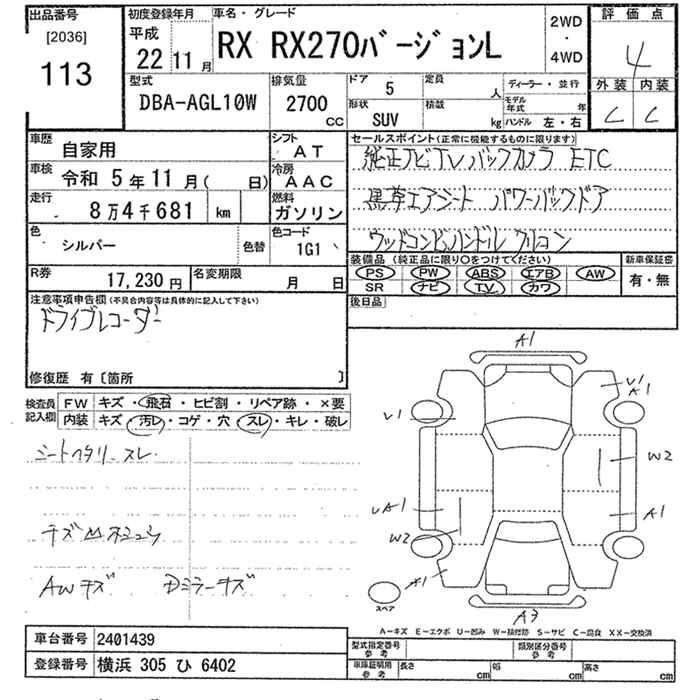 出品番号 初度登録年月 車名・グレード 2WD ・ 4WD 評価点
[2036] 平成 22 11月 RX RX270バージョンL 4
113 外装 内装
型式 排気量 ドア 5 定員 人 ディーラー・並行 C C
DBA-AGL10W 2700 CC 形状 SUV 積載 kg モデル年式 年 ハンドル 左・右
車歴 自家用 シフト AT セールスポイント(正常に機能するものに限ります)
車検 令和 5年 11月( 日) 冷房 AAC 純正ナビTV バックカメラ ETC
走行 8万4千681 km 燃料 ガソリン 黒革エアシート パワーバックドア
色 シルバー 色替 色コード 1G1 ウッドコンビハンドル クリコン
R券 17,230円 名変期限 月 日 装備品(純正品に限り○をつけてください) 新車保証書
PS PW ABS エアB AW 有・無
SR ナビ TV カワ
注意事項申告欄(不具合内容等は具体的に記入して下さい) 後日品
ドライブレコーダー
修復歴 有〔箇所 〕
検査員記入欄 FW キズ・飛石・ヒビ割・リペア跡・×要
内装 キズ・汚レ・コゲ・穴・スレ・キレ・破レ
シートヘタリ スレ
AWキズ Dミラーキズ
A1
U1
A1
U1
W2
UA1
A1
W2
A1
スペア
A3
A-キズ E-エクボ U-凹み W-補修跡 S-サビ C-腐食 XX-交換済
車台番号 2401439 型式指定番号 参考 類別区分番号 参考
登録番号 横浜 305 ひ 6402 車庫証明用 参考 長さ cm 幅 cm 高さ cm